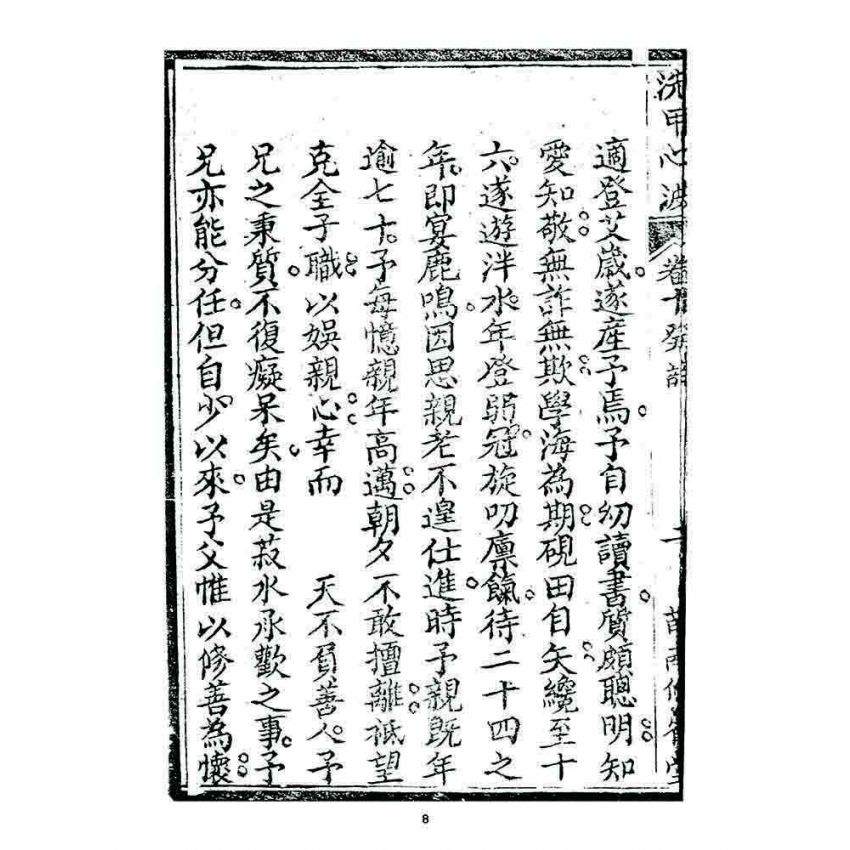 洗甲心波 卷下 發端 二
適登艾歲遂產予焉予自幼讀書質頗聰明知
愛知敬無詐無欺學海為期硯田自矢纔至十
六遂遊泮水年登弱冠旋叨廩餼待二十四之
年即宴鹿鳴因思親老不遑仕進時予親既年
逾七十予每憶親年高邁朝夕不敢擅離祇望
克全子職以娛親心幸而 天不負善人予
兄之秉質不復癡呆矣由是菽水承歡之事予
兄亦能分任但自少以來予父惟以修善為懷
8